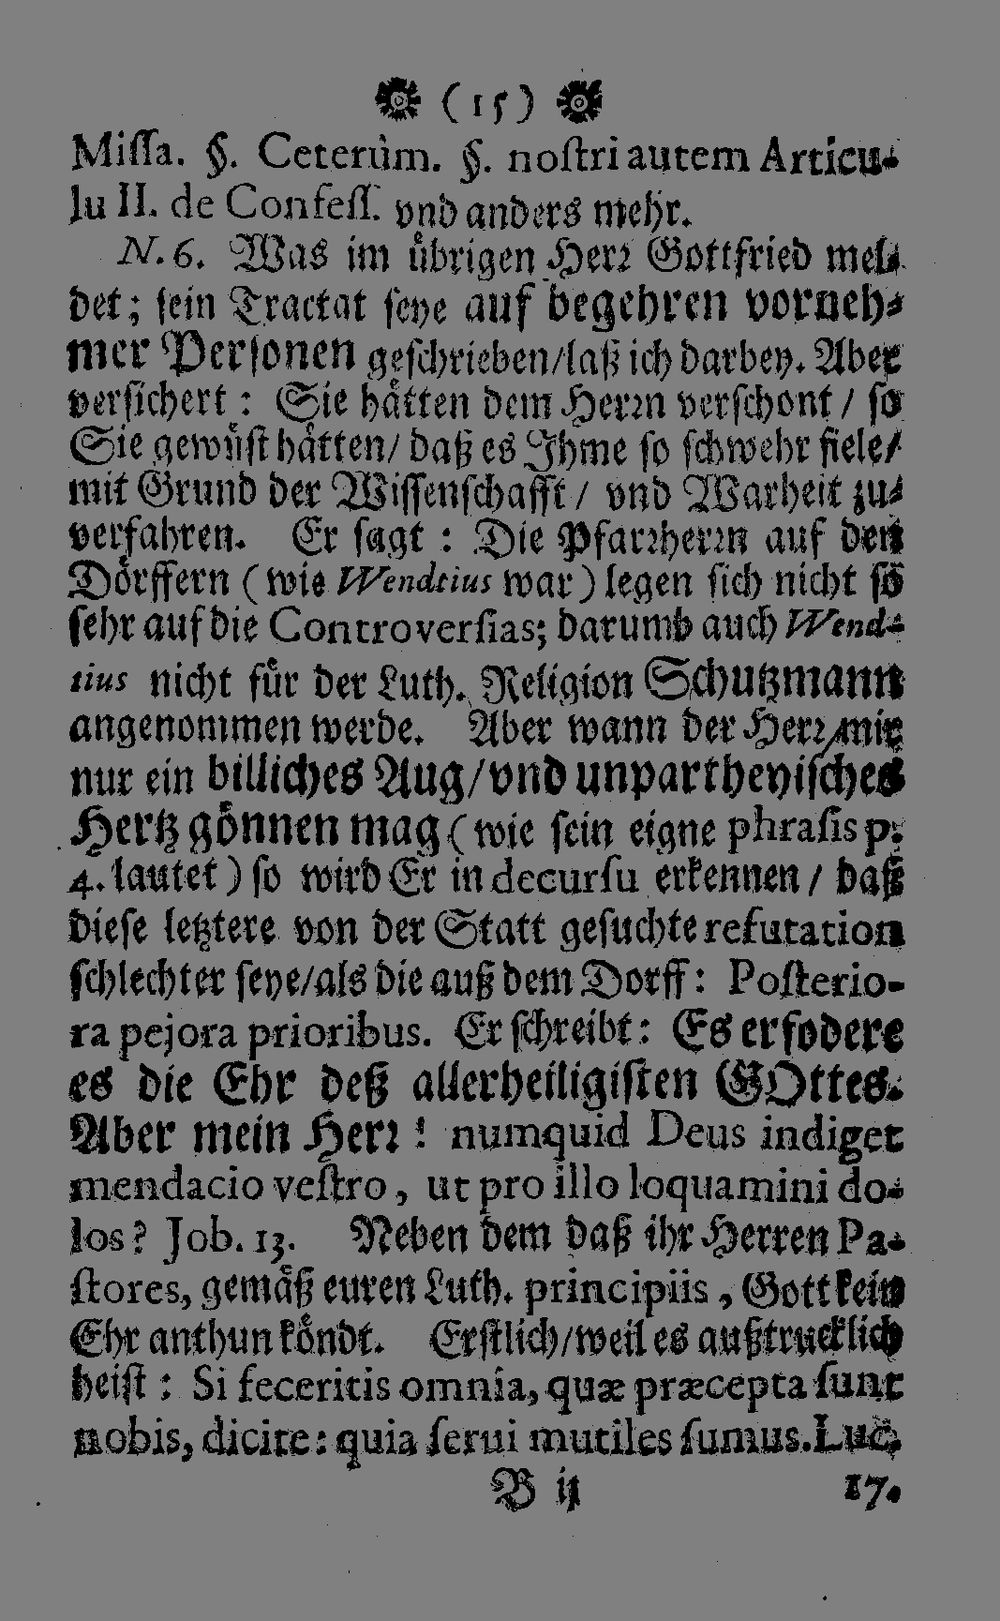 (15)
Missa. §. Ceterùm. §. nostri autem Articu-
lu II. de Confess. vnd anders mehr.
N. 6. Was im übrigen Herr Gottfried mel-
det; sein Tractat seye auf begehren vorneh-
mer Personen geschrieben/laß ich darbey. Aber
versichert: Sie hätten dem Herrn verschont / so
Sie gewüst hätten/ daß es Ihme so schwehr fiele/
mit Grund der Wissenschafft / vnd Warheit zu-
verfahren. Er sagt: Die Pfarrherrn auf den
Dörffern (wie Wendtius war) legen sich nicht so
sehr auf die Controversias; darumb auch Wend-
tius nicht für der Luth. Religion Schutzmann
angenommen werde. Aber wann der Herr mir
nur ein billiches Aug/vnd unpartheyisches
Hertz gönnen mag (wie sein eigne phrasis p.
4. lautet) so wird Er in decursu erkennen / daß
diese letztere von der Statt gesuchte refutation
schlechter seye/als die auß dem Dorff: Posterio-
ra pejora prioribus. Er schreibt: Es erfodere
es die Ehr deß allerheiligisten GOttes.
Aber mein Herr! numquid Deus indiget
mendacio vestro, ut pro illo loquamini do-
los? Job. 13. Neben dem daß ihr Herren Pa-
stores, gemäß euren Luth. principiis, Gott kein
Ehr anthun köndt. Erstlich/weil es außtrucklich
heist: Si feceritis omnia, quæ præcepta sunt
nobis, dicite: quia serui mutiles sumus. Luc.
B ij 17.